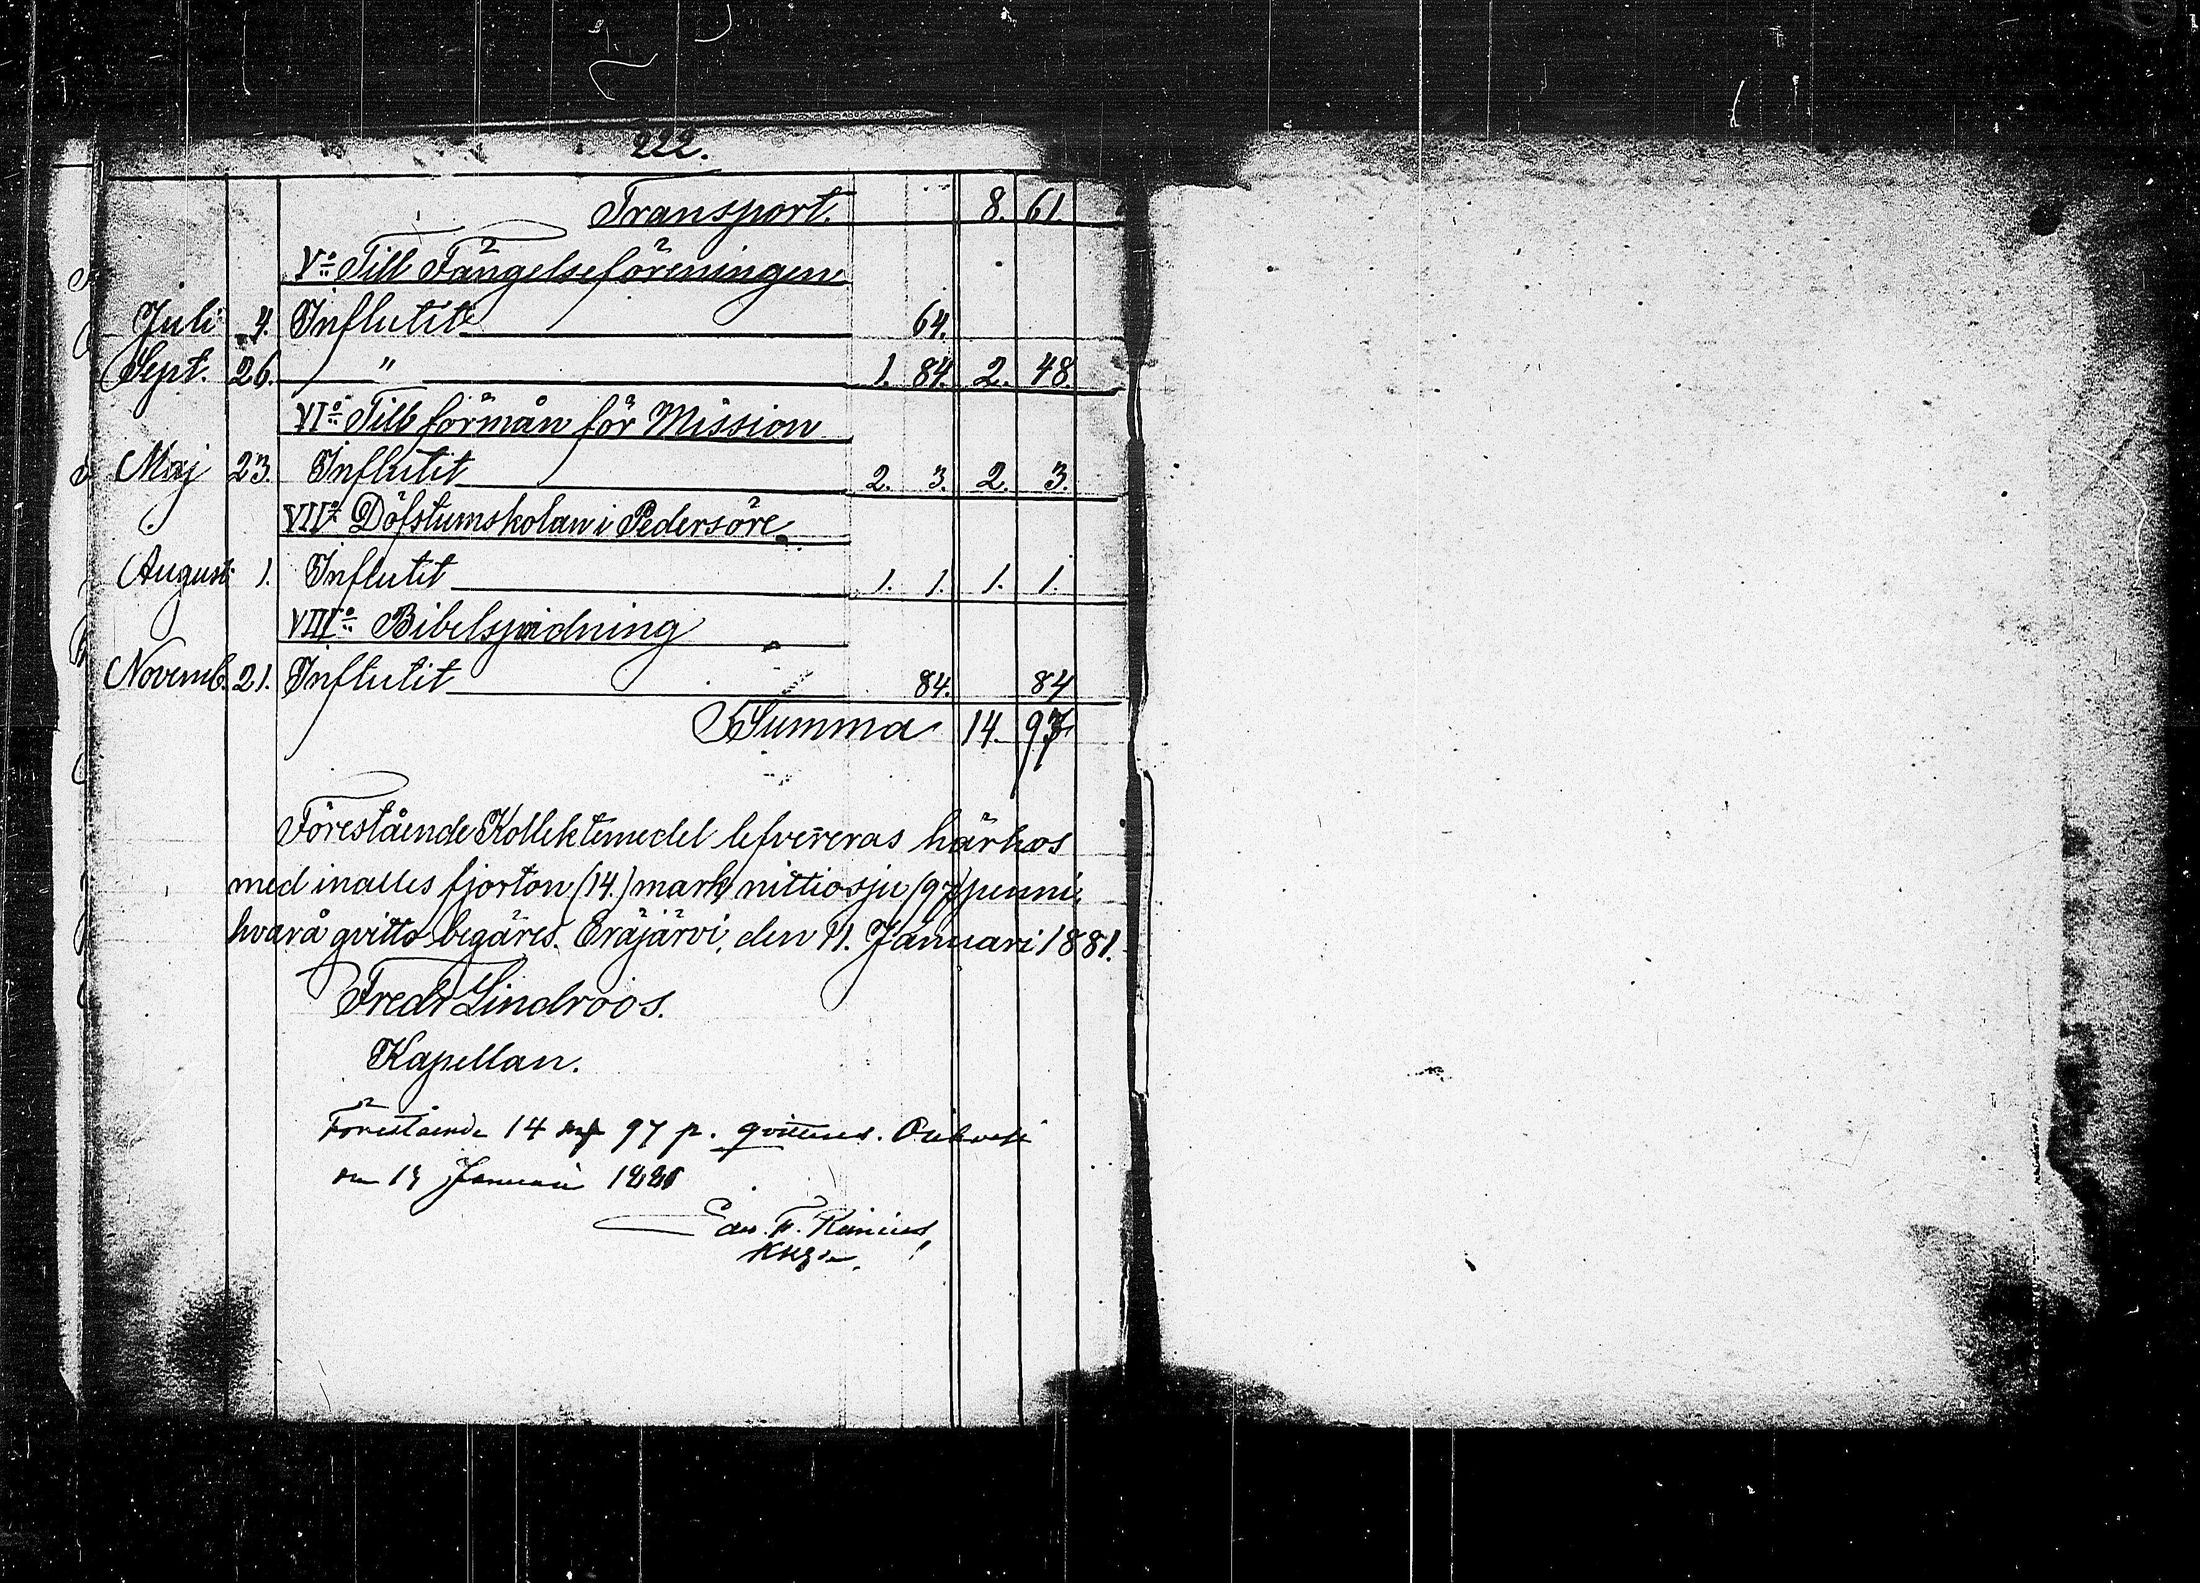 222.
Transport. 8. 61.
V:o Till Fängelseföreningen
Juli 4. Influtit 64.
Sept. 26. " 1. 84. 2. 48.
VI:o Till förmån för Mission
Maj 23. Influtit 2. 3. 2. 3.
VII:o Döfstumskolan i Pedersöre.
Augusti 1. Influtit 1. 1. 1. 1.
VIII:o Bibelspridning
Novemb. 21. Influtit 84. 84
Summa 14. 97
Förestående Kollektemedel lefvereras härhos
med inalles fjorton (14.) mark nittiosju (97) penni,
hvarå qvitto begäres. Eräjärvi, den 11. Januari 1881.
Fredr Lindroos.
Kapellan.
Förestående 14 mf 97 p. qvitteras. Orihvesi
den Januari 1881
F.